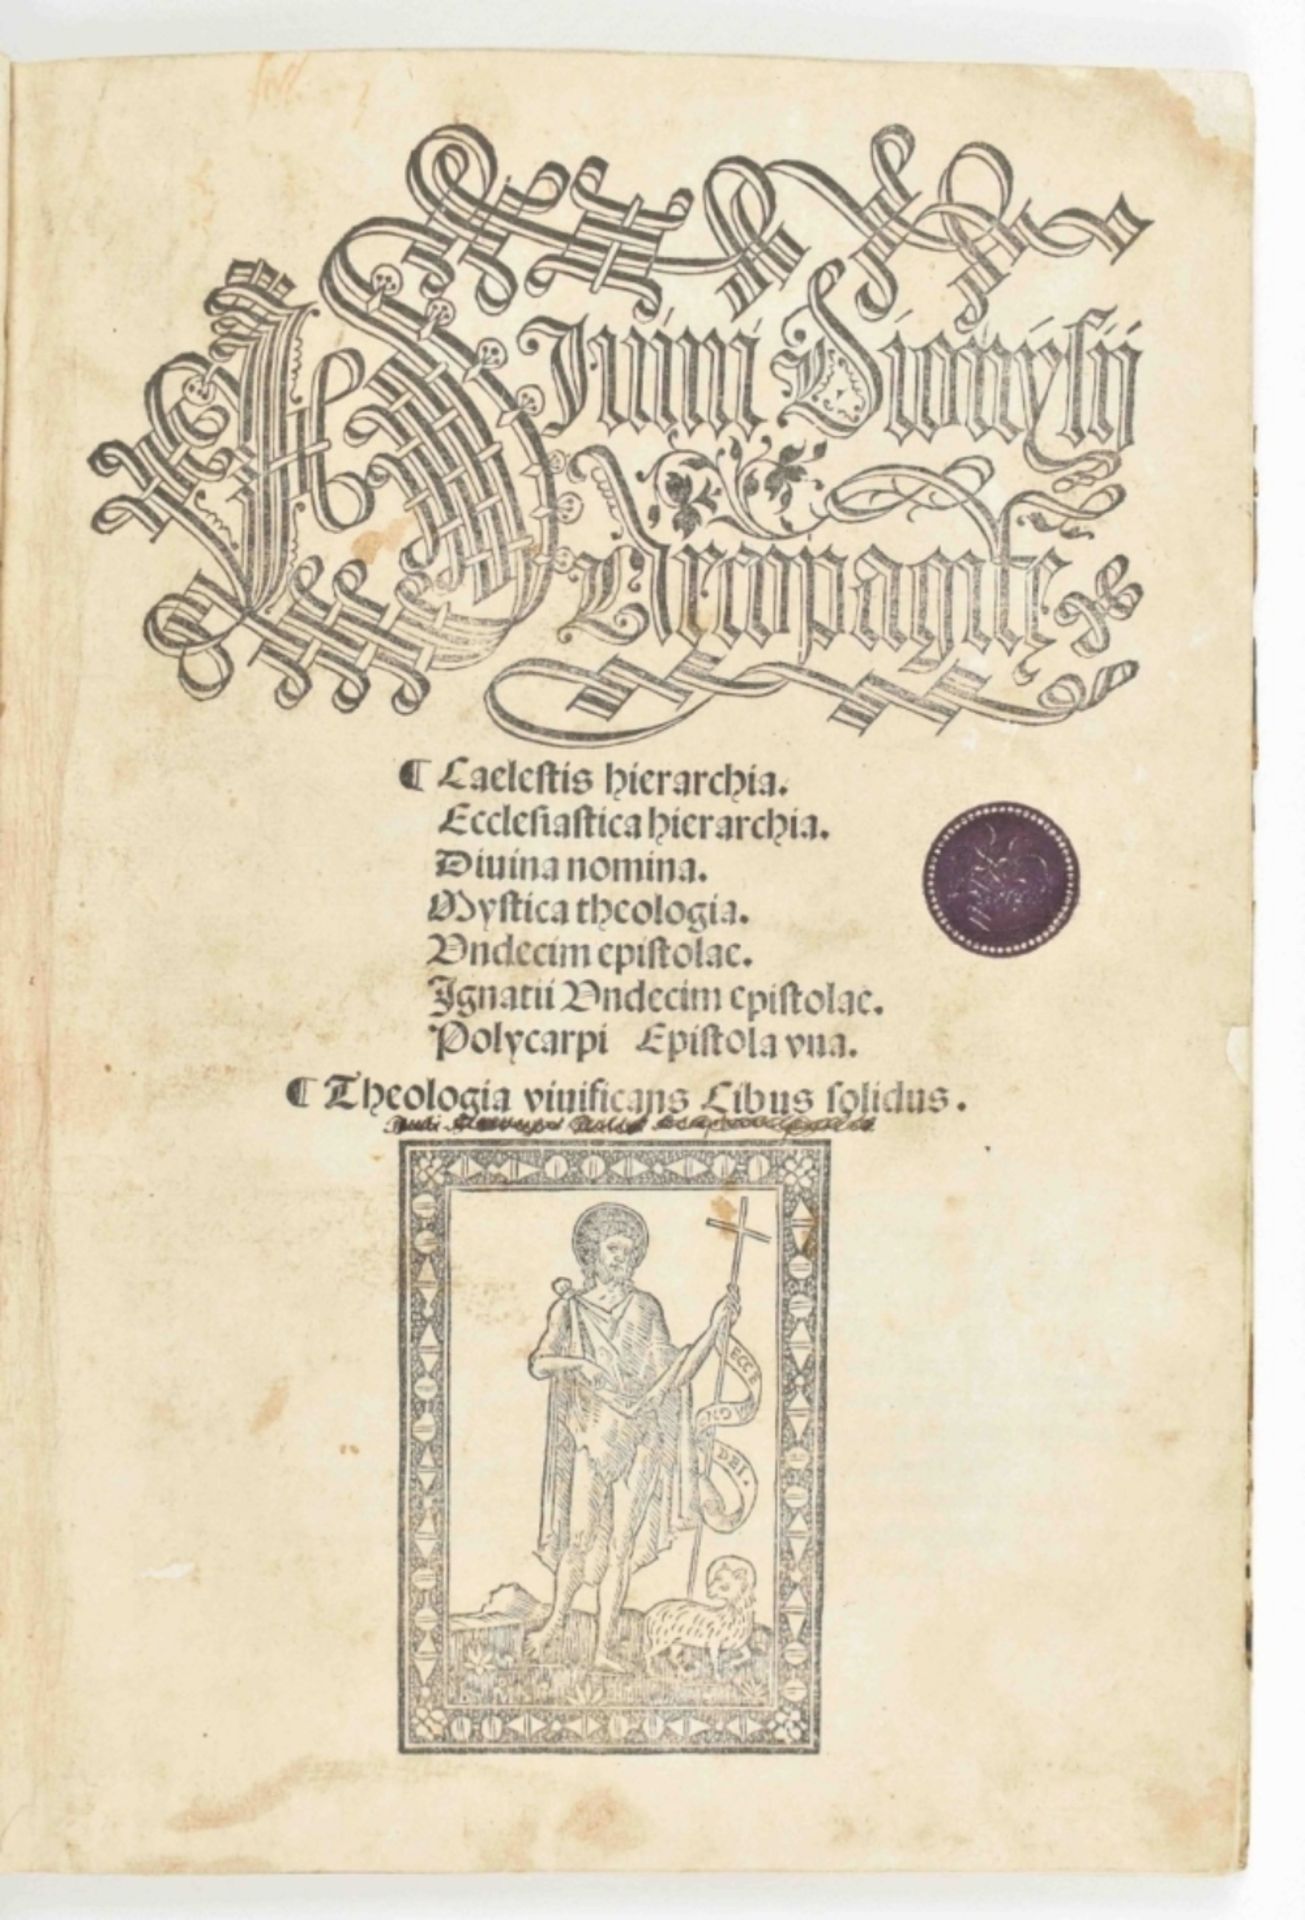 Diuini Dionysij
Areopagite
¶ Caelestis hierarchia.
Ecclesiastica hierarchia.
Diuina nomina.
Mystica theologia.
Vndecim epistolae.
Ignatii Vndecim epistolae.
Polycarpi Epistola vna.
¶ Theologia viuificans Cibus solidus.
ECCE
DEI.